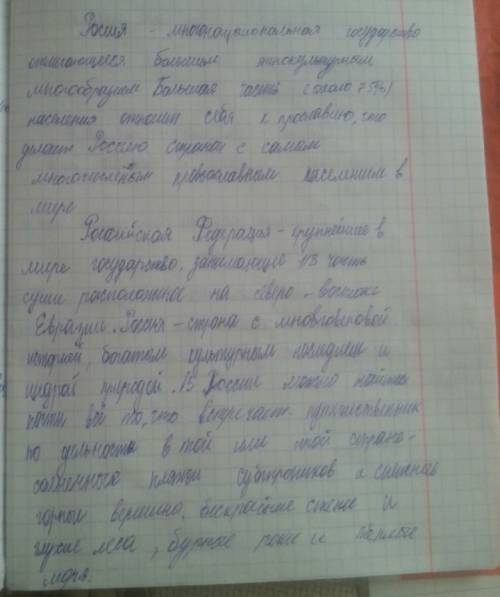 Россия - многонациональная государство
отличающиеся большим этнокультурным
многообразием Большая часть (около 75%)
населения относит себя к православию, что
делает Россию страной с самым
многочисленным православным населением в
мире
Российская Федерация - крупнейшее в
мире государство, занимающие 1/8 часть
суши расположенное на северо - востоке
Евразии. Россия - страна с многовековой
историей, богатым культурным наследием и
щедрой природой. В России можно найти
почти всё то, что встречает путешественник
по в той или иной стране -
солнечного пляжи субтропиков и снежные
горные вершины, бескрайние степи и
глухие леса, бурные реки и тёплые
моря.